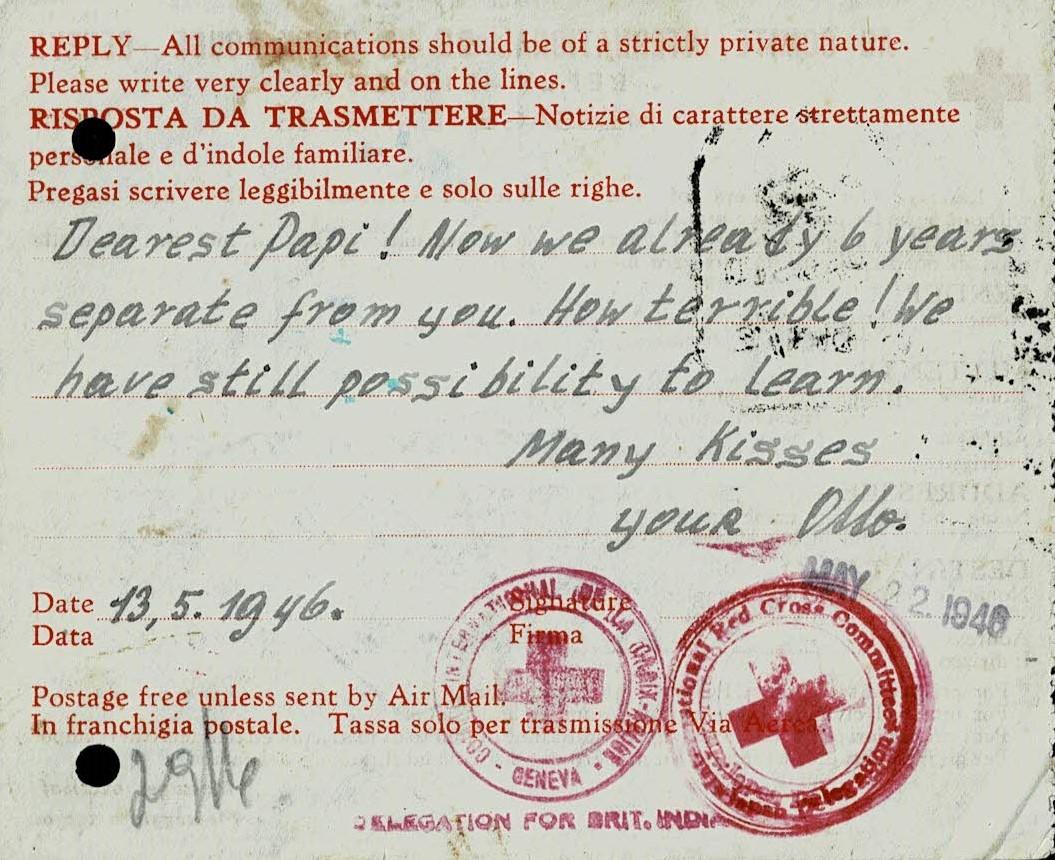 REPLY—All communications should be of a strictly private nature.
Please write very clearly and on the lines.
RISPOSTA DA TRASMETTERE—Notizie di carattere strettamente
personale e d'indole familiare.
Pregasi scrivere leggibilmente e solo sulle righe.
Dearest Papi! Now we already 6 years
separate from you. How terrible! We
have still possibility to learn.
Many Kisses
your Otto.
MAY 22 1946
Date 13, 5. 1946. Signature
Data Firma
Postage free unless sent by Air Mail.
In franchigia postale. Tassa solo per trasmissione Via Aerea.
INTERNATIONAL DE LA CROIX-ROUGE
GENEVA
Red Cross Committee
Delegation
DELEGATION FOR BRIT. INDIA